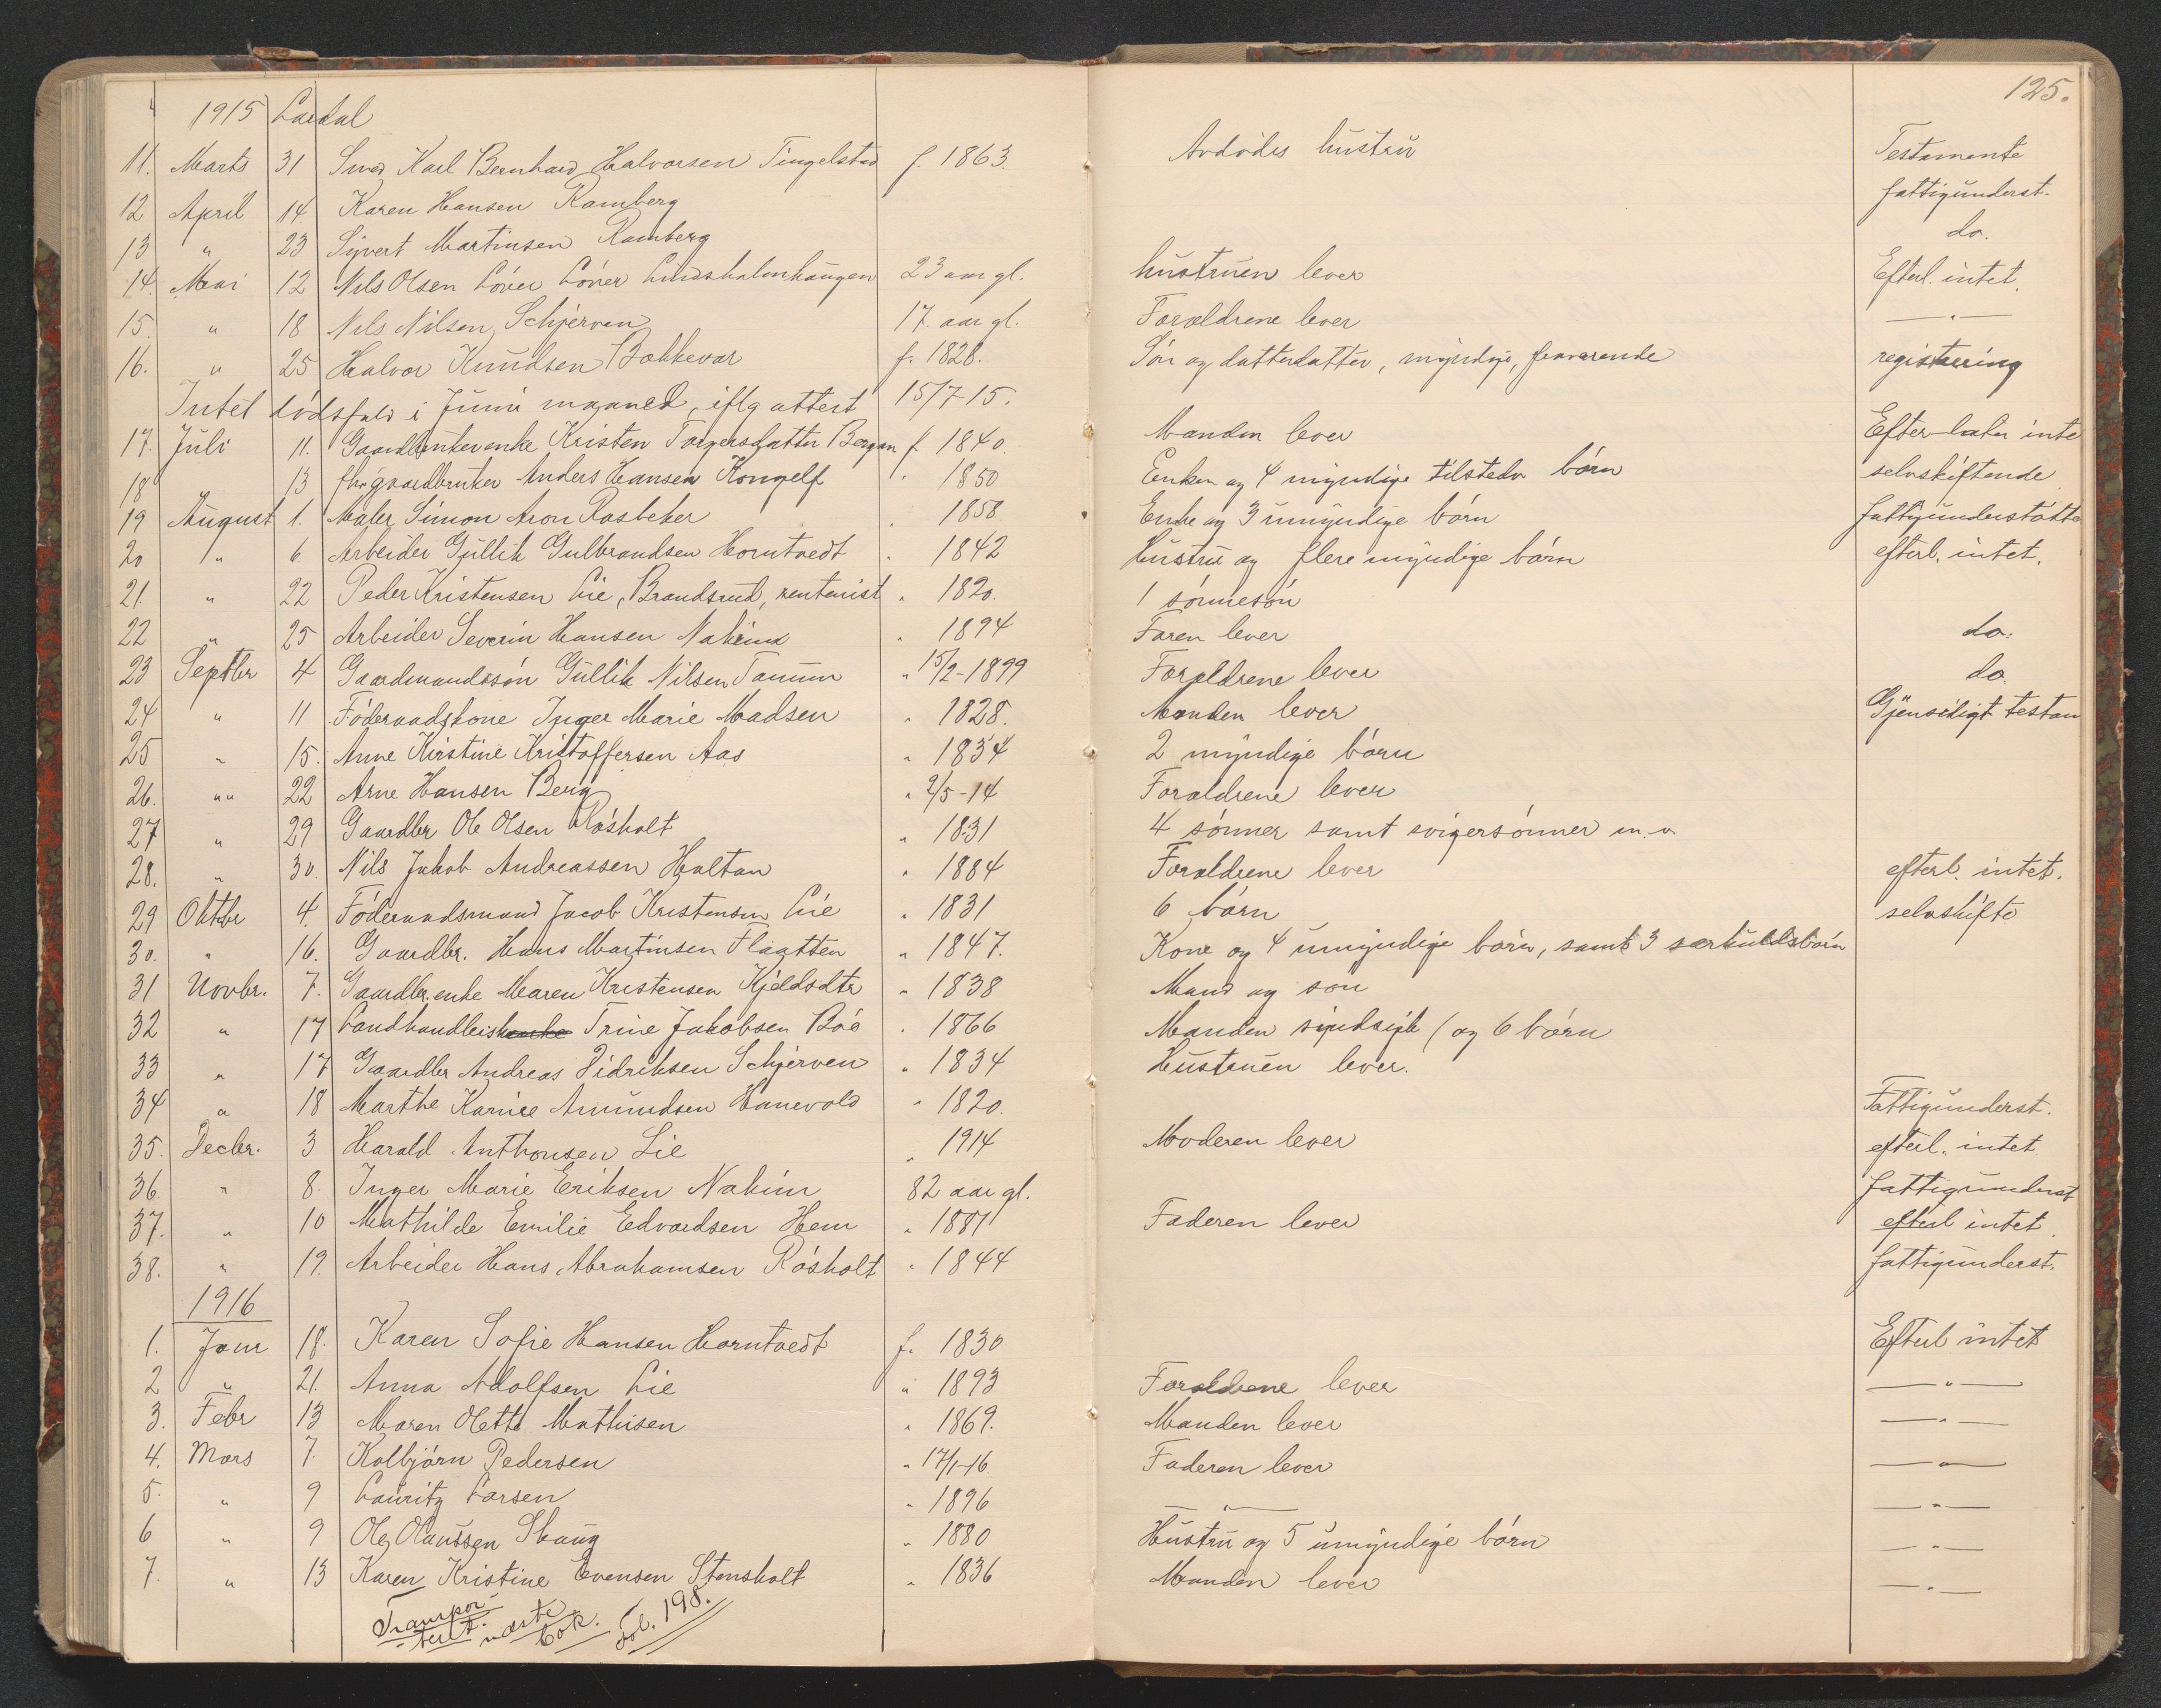 125.
1915 Lardal
11. Marts 31 Smed Karl Bernhard Halvorsen Tingelstad f. 1863. Avdødes hustru Testamente
12 April 14 Karen Hansen Ramberg fattigunderst.
13 " 23 Syvert Martinsen Ramberg do.
14. Mai 12 Nils Olsen Löver 23 aar gl. hustruen lever Efterl. intet.
15. " 18 Nils Nilsen Schjerven 17. aar gl. Forældrene lever — " —
16. " 25 Halvor Knudsen Bakkevar f. 1828. Sön og datterdatter, myndige, fraværende registrering
Intet dödsfald i Juni maaned, iflg attest 15/7-15.
17. Juli 11. Gaardbrukerenke Kristen Torgersdatter Bergan f. 1840. Manden lever Efterlater inte
18 13 fhv. gaardbruker Anders Hansen Kongelf " 1850 Enken og 4 myndige tilstedv börn selvskiftende
19 August 1. Maler Simon Aron Rasbeker " 1858 Enke og 3 umyndige börn fattigunderstötte
20 " 6 Arbeider Gullik Gulbrandsen Horntvedt " 1842 Hustru og flere myndige börn efterl. intet.
21. " 22 Peder Kristensen Lie, Brandsrud, rentenist " 1820. 1 sönnesön
22 " 25 Arbeider Severin Hansen Nakim " 1894 Faren lever do.
23 Septbr 4 Gaardmandssön Gullik Nilsen Tanum " 15/2-1899 Forældrene lever do
24 " 11 Föderaadskone Inger Marie Madsen " 1828. Manden lever Gjensidigt testam
25 " 15. Anne Kirstine Kristoffersen Aas " 1834 2 myndige börn
26. " " 22 Arne Hansen Berg " 2/5-14 Forældrene lever
27 " 29 Gaardbr Ole Olsen Rösholt " 1831 4 sönner samt svigersönner m.v.
28. " 30. Nils Jakob Andreassen Holtan " 1884 Forældrene lever efterl. intet.
29 Oktbr 4. Föderaadsmand Jacob Kristensen Lie " 1831 6 börn selvskifte
30. " 16. Gaardbr. Hans Martinsen Flaatten " 1847. Kone og 4 umyndige börn, samt 3 særkuldsbörn
31 Novbr. 7. Gaardbr.enke Maren Kristensen Kjeldsdtr " 1838 Mand og sön
32 " 17 Landhandlersk Trine Jakobsen Böe " 1866 Manden (og 6 börn
33 " 17 Gaardbr Andreas Didriksen Schjerven " 1834 Hustruen lever.
34 " 18 Marthe Karine Amundsen Hanevold " 1820. Fattigunderst.
35. Decbr. 3 Harald Anthonsen Lie " 1914 Moderen lever efterl. intet
36 " 8. Inger Marie Eriksen Nakim 82 aar gl. fattigunderst
37. " 10 Mathilde Emilie Edvardsen Hem " 1881 Faderen lever efterl intet.
38. " 19. Arbeider Hans Abrahamsen Rösholt " 1844 fattigunderst.
1916
1. Janr 18. Karen Sofie Hansen Horntvedt f. 1830 Efterl intet
2 " 21. Anna Adolfsen Lie " 1893 Forældrene lever — " —
3. Febr 13 Maren Olette Mathisen " 1869. Manden lever — " —
4. Mars 7. Kolbjörn Pedersen " 17/1-16 Faderen lever — " —
5. " 9 Lauritz Larsen " 1896 — " — — " —
6 " 9 Ole Olaussen Skaug " 1880 Hustru og 5 umyndige börn — " —
7. " 13 Karen Kristine Evensen Stensholt " 1836 Manden lever — " —
Transpor-
tert. næste
bok. fol. 198.